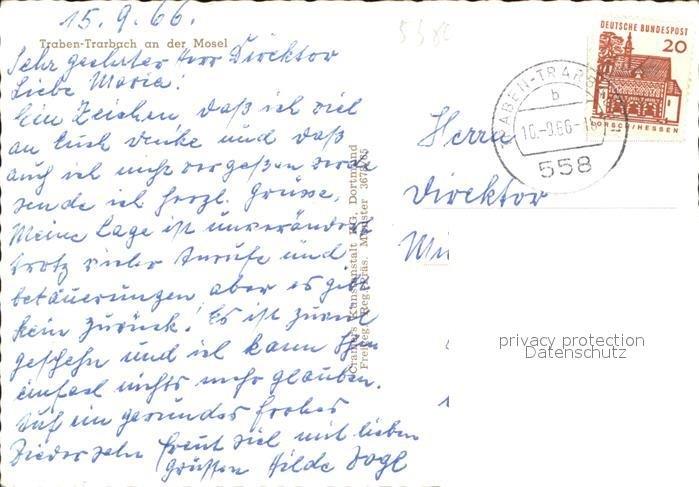 15.9.66.
Traben-Trarbach an der Mosel
Sehr geehrter Herr Direktor
Liebe Maria!
Ein Zeichen, daß ich viel
an Euch denke und daß
auch ich nicht vergeßen werde
sende ich herzl. Grüsse.
Meine Lage ist unverändert
trotz vieler Anrufe und
betäuerungen aber es gibt
kein zurück! Es ist zuviel
geschehn und ich kann Ihm
einfach nichts mehr glauben.
Auf ein gesundes frohes
Wiedersehn freut sich mit lieben
Grüßen Hilde Vogl
Cramers Kunstanstalt KG. Dortmund
Freigeg. Reg.-Präs. Münster 3678/65
DEUTSCHE BUNDESPOST
20
LORSCH/HESSEN
TRABEN-TRARB
b
16.-9.66.-18
558
Herrn
Direktor
privacy protection
Datenschutz